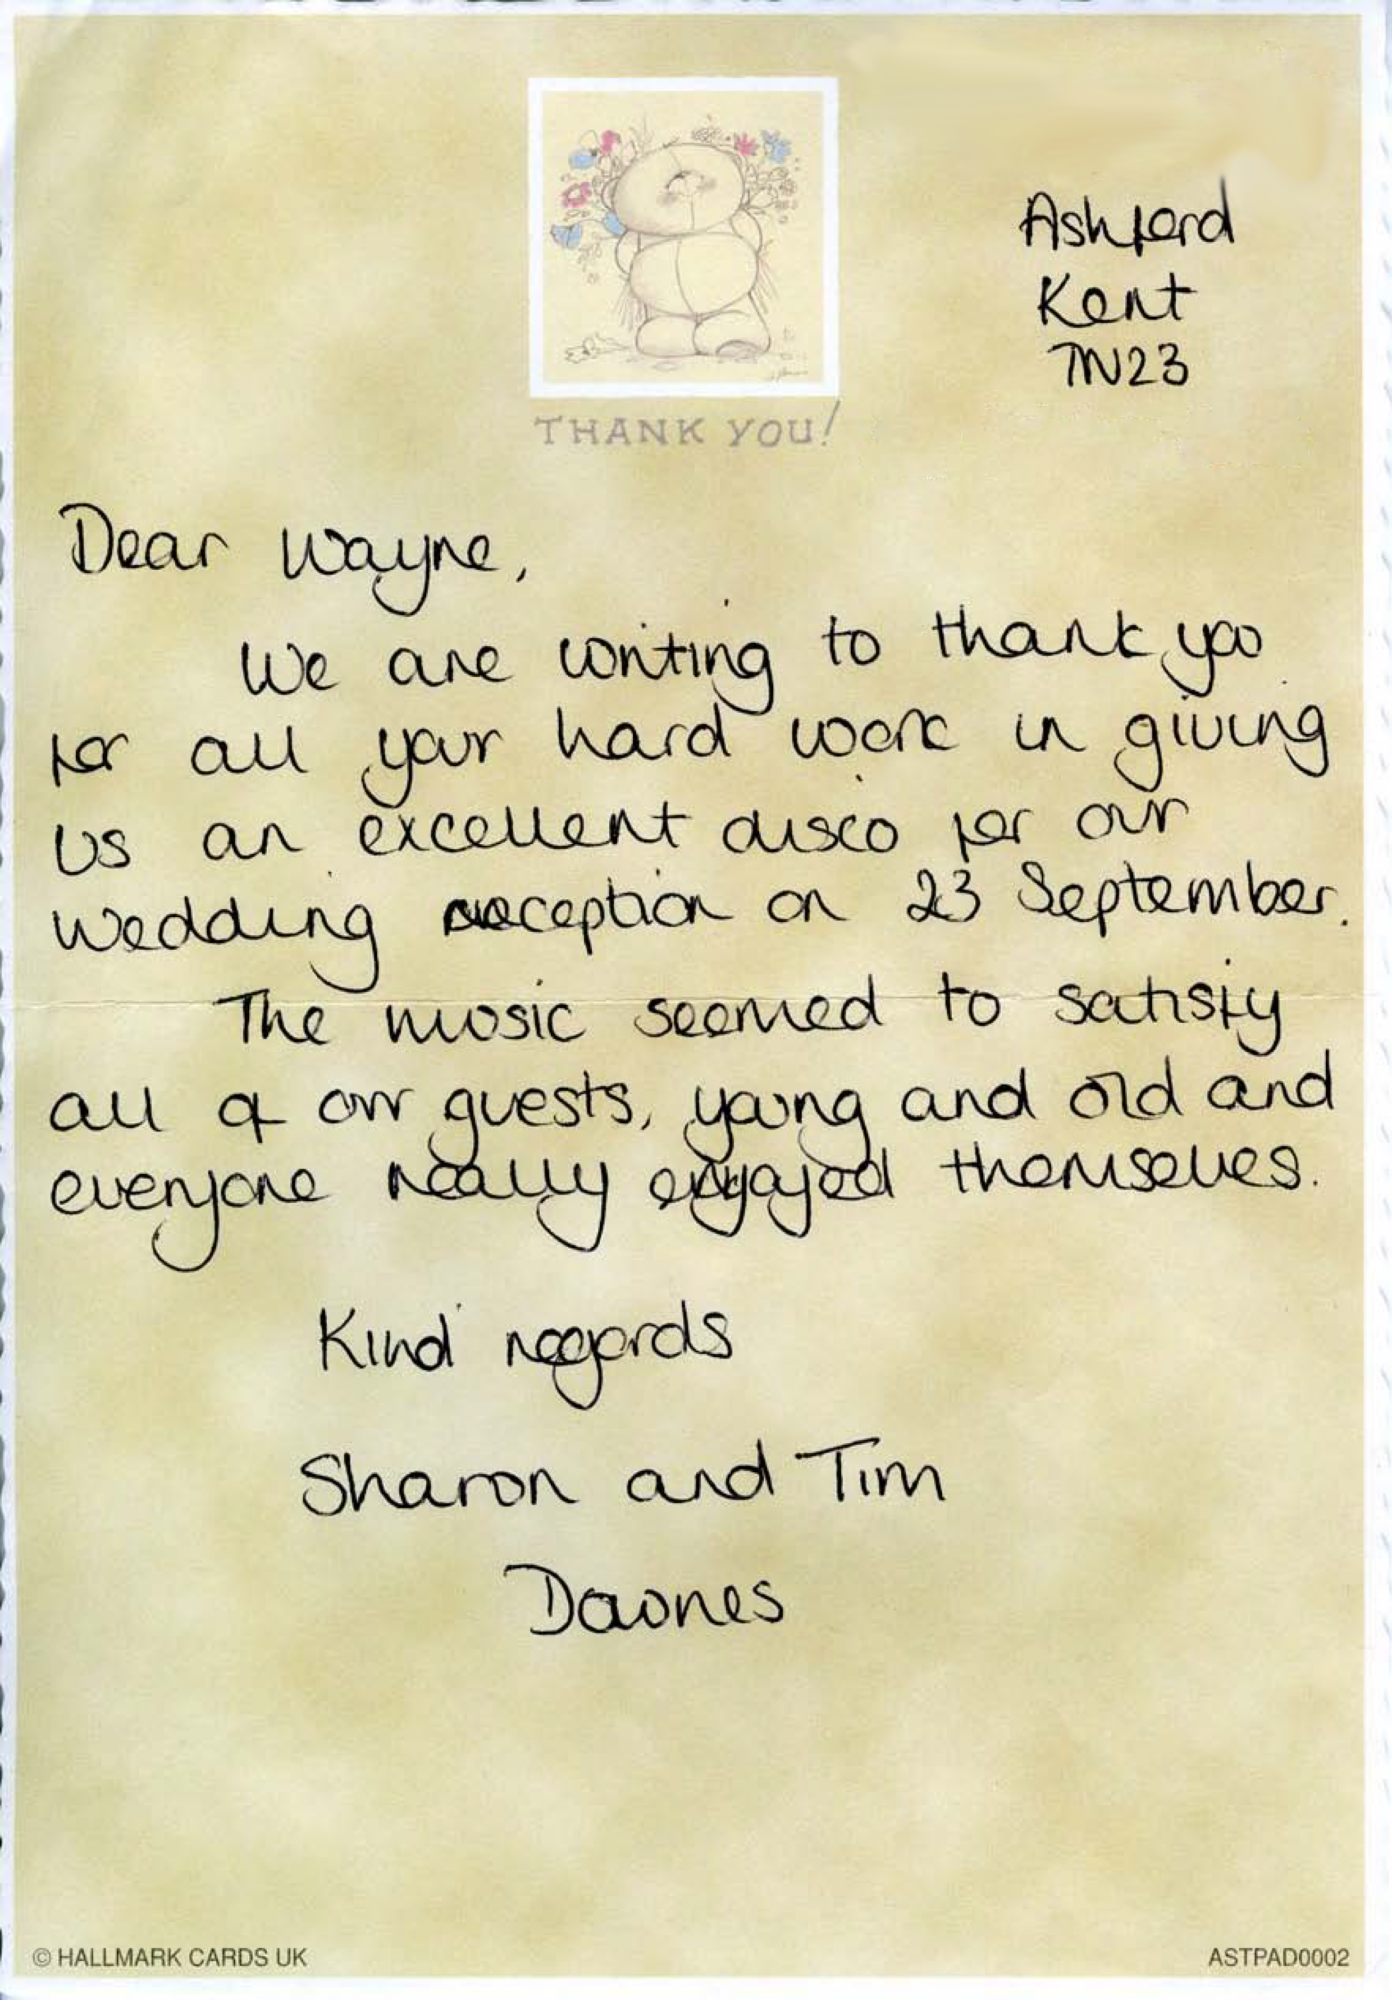 Ashford
Kent
TN23
THANK YOU!
Dear Wayne,
We are writing to thank you
for all your hard work in giving
us an excellent disco for our
wedding reception on 23 September.
The music seemed to satisfy
all of our guests, young and old and
everyone really enjoyed themselves.
Kind regards
Sharon and Tim
Downes
© HALLMARK CARDS UK
ASTPAD0002